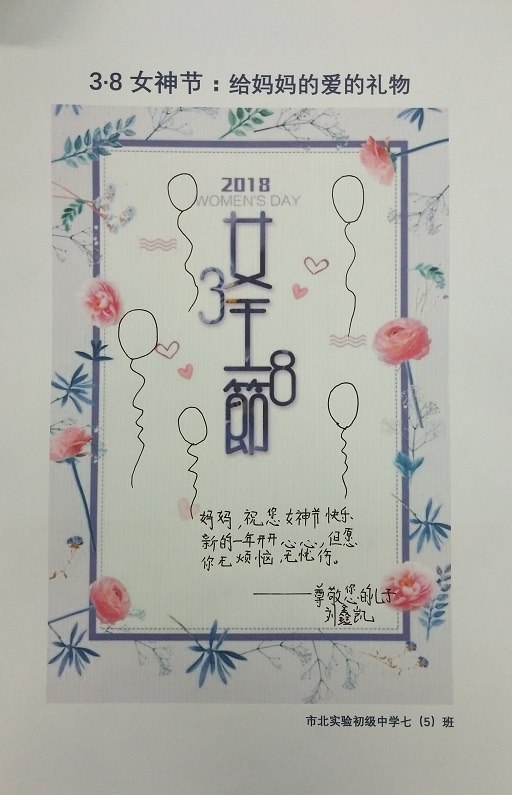 3·8 女神节：给妈妈的爱的礼物
2018
WOMEN'S DAY
3
女
王
8
節
妈妈,祝您女神节快乐
新的一年开开心心,但愿
你无烦恼,无忧伤。
——尊敬您的儿子
刘鑫凯
市北实验初级中学七（5）班